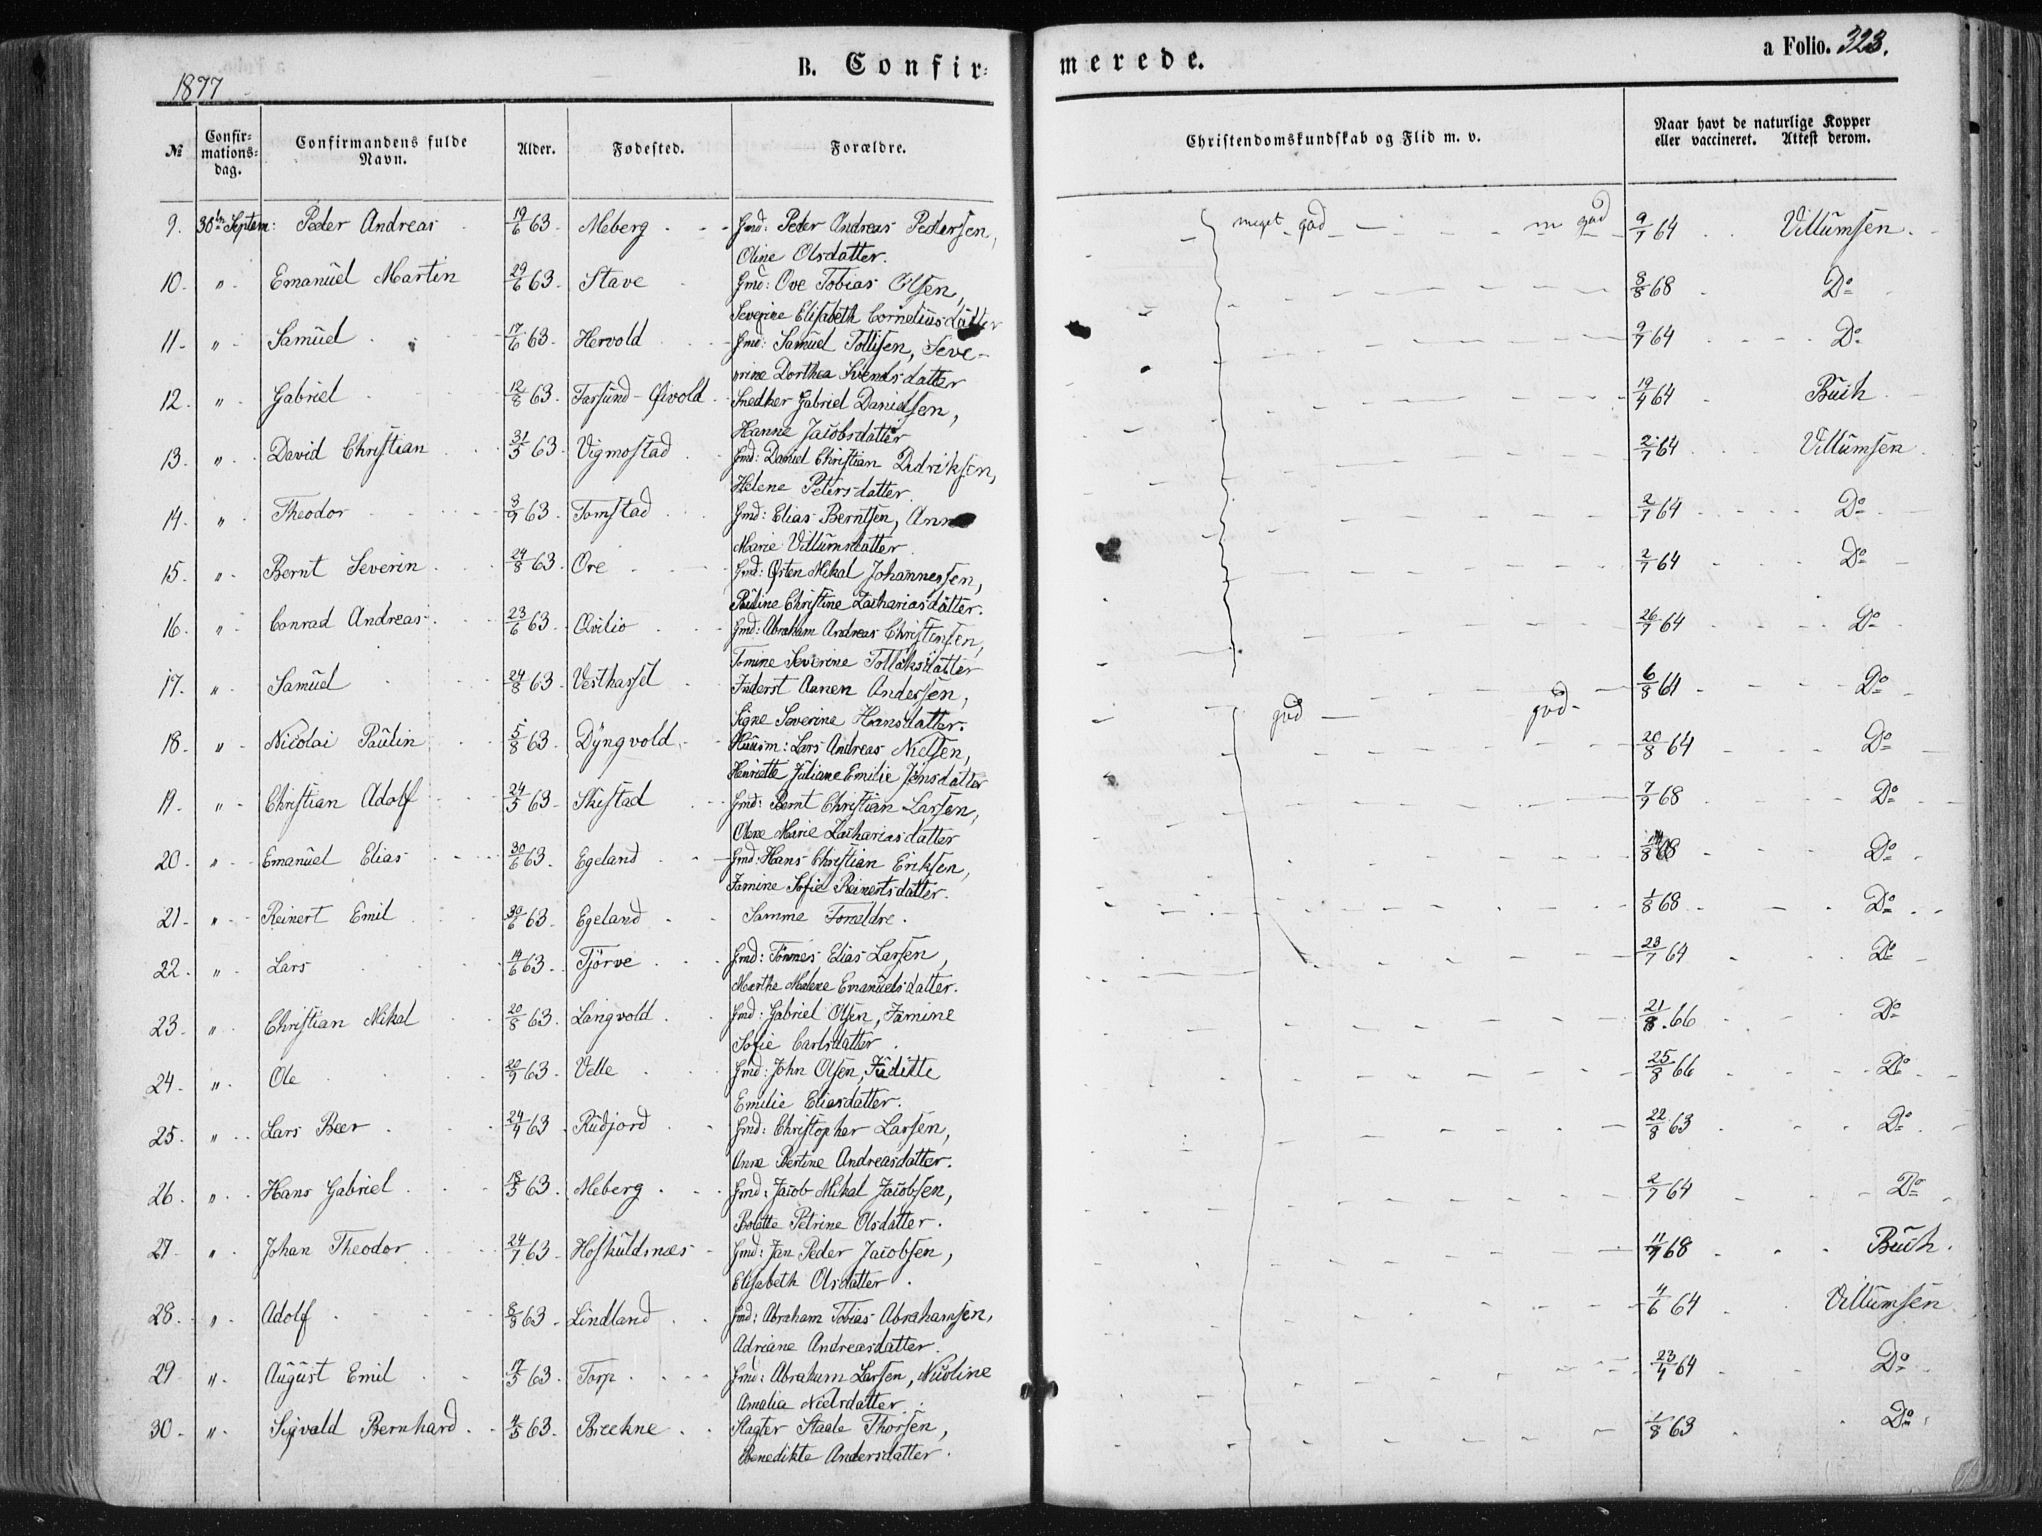 1877
B. Confir-
merede.
a Folio. 323.
№
Confir-
mations-
dag.
Confirmandens fulde
Navn.
Alder.
Fødested.
Forældre.
Christendomskundskab og Flid m. v.
Naar havt de naturlige Kopper
eller vaccineret. Attest derom.
9. 30te Septem: Peder Andreas 19/6 63 Meberg Gmd: Peder Andreas Pedersen, meget god m god 9/7 64 Villumsen
Oline Olsdatter.
10 " Emanuel Martin 29/6 63 Stave Gmd: Ove Tobias Olsen, 8/8 68 Do
Severine Elisabeth Corneliusdatter
11 " Samuel 17/6 63 Hervold Gmd: Samuel Tollisen, Seve- 9/7 64 Do
rine Dorthea Svendsdatter
12 " Gabriel 12/8 63 Farsund-Øivold Snedker Gabriel Danielsen, 19/4 64 Buch
Hanne Jacobsdatter
13 " David Christian 31/5 63 Vigmostad Gmd: Daniel Christian Didriksen, 2/7 64 Villumsen
Helene Petersdatter
14 " Theodor 3/9 63 Tomstad Gmd: Elias Berntsen, Anne 2/7 64 Do
Marie Villumsdatter
15 " Bernt Severin 24/8 63 Ore Gmd: Østen Mikal Johannessen, 2/7 64 Do
Pauline Christine Zachariasdatter.
16 " Conrad Andreas 23/6 63 Qvilio Gmd: Abraham Andreas Christensen, 26/7 64 Do
Tomine Severine Tollaksdatter
17 " Samuel 24/8 63 Vesthassel Inderst Aanen Andersen, god god 6/8 64 Do
Signe Severine Hansdatter.
18 " Nicolai Paulin 5/8 63 Dyngvold Huusm: Lars Andreas Nielsen, 20/8 64 Do
Henriette Juliane Emilie Jensdatter
19 " Christian Adolf 24/5 63 Skistad Gmd: Bernt Christian Larsen, 7/9 68 Do
Olene Marie Zachariasdatter
20 " Emanuel Elias 30/6 63 Egeland Gmd: Hans Christian Eriksen, 68 Do
Jamine Sofie Reinertsdatter.
21 " Reinert Emil 30/6 63 Egeland Samme Forældre. 1/8 68 Do
22 " Lars 14/6 63 Tjörve Gmd: Tönnes Elias Larsen, 23/7 64 Do
Marthe Malene Emanuelsdatter.
23 " Christian Mikal 20/8 63 Langvold Gmd: Gabriel Olsen, Jamine 21/8 66 Do
Sofie Carlsdatter
24 " Ole 22/9 63 Velle Gmd: John Olsen, Juditte 25/8 66 Do
Emilie Eliasdatter.
25 " Lars Beer 24/4 63 Rudjord Gmd: Christopher Larsen, 22/8 63 Do
Anne Bertine Andreasdatter.
26 " Hans Gabriel 18/5 63 Meberg Gmd: Jacob Mikal Jacobsen, 2/7 64 Do
Bolette Petrine Olsdatter.
27 " Johan Theodor 24/7 63 Hoskuldsnæs Gmd: Jan Peder Jacobsen, 11/7 68 Buch.
Elisabeth Olsdatter.
28 " Adolf 8/8 63 Lindland Gmd: Abraham Tobias Abrahamsen, 4/6 64 Villumsen
Adriane Andreasdatter.
29 " August Emil 17/5 63 Torp Gmd: Abraham Larsen, Nicoline 23/4 64 Do
Amalia Nielsdatter.
30 " Sigvald Bernhard 4/5 63 Brekne Slagter Staale Thorsen, 1/8 63 Do
Benedikte Andersdatter.